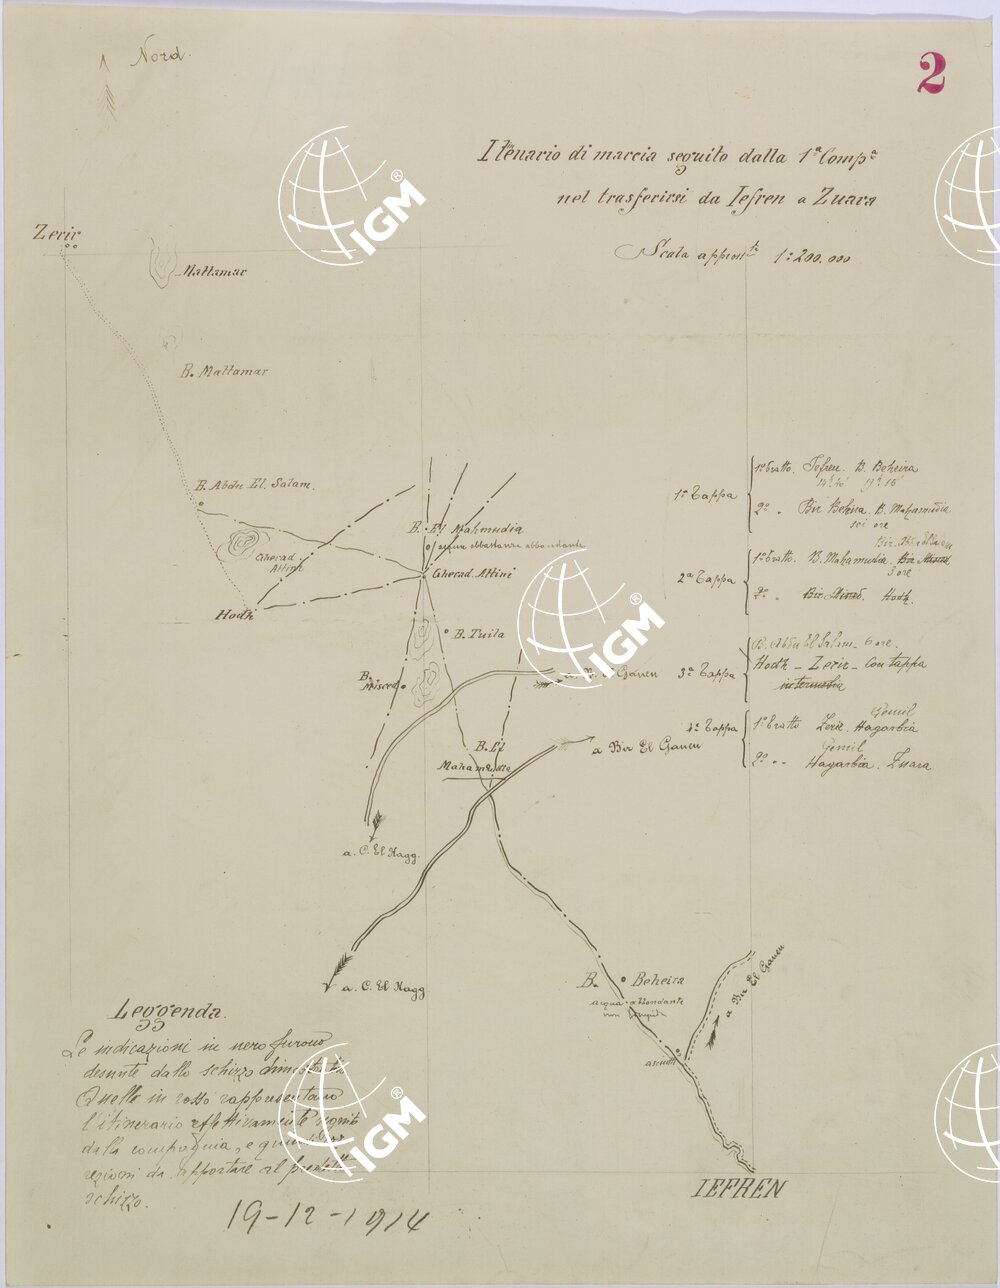 Nord.
2
Itenerario di marcia seguito dalla 1ª Compª
nel trasferirsi da Iefren a Zuara
Scala appross. 1:200.000
Zerir
Mattamar
B. Mattamar
B. Abdu El Salam.
Gherad
Attini
Hodh
B. El Mahmudia
acqua abbastanza abbondante
Gherad. Attini
B. Tuila
B.
Misced
a B. El Ganen
B. El
Mahamudia
a Bir El Ganen
a. C. El Hagg.
a. C. El Hagg
B. Beheira
acqua abbondante
non
a Bir El Ganen
IEFREN
1ª Tappa
1º tratto. Iefren. B. Beheira
14h.40' 19h.15'
2º " Bir Beheira. B. Mahamudia
sei ore
2ª Tappa
Bir. Abdu El Salam
1º tratto. B. Mahamudia. Bir Misced
5 ore
2º " Bir Misced. Hodh.
3ª Tappa
B. Abdu El Salam - 6 ore.
Hodh - Zerir - Con tappa
intermedia
4ª Tappa
Gemil
1º tratto Zerir. Hagarbia
Gemil
2º " Hagarbia. Zuara
Leggenda.
Le indicazioni in nero furono
desunte dallo schizzo dimostrativo
Quelle in rosso rappresentano
l'itinerario effettivamente seguito
dalla compagnia, e quindi le cor
rezioni da apportare al predetto
schizzo.
19-12-1914
IGM®
IGM®
IGM®
IGM®